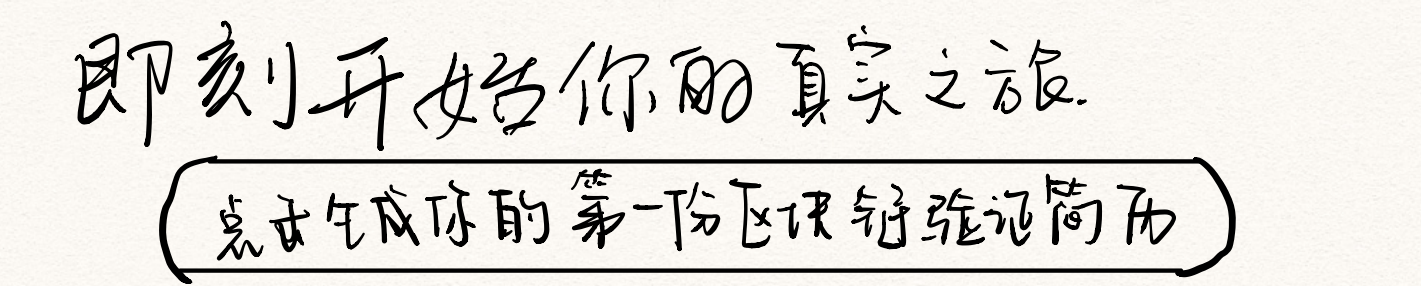 即刻开始你的真实之旅.
点击生成你的第一份区块链验证简历